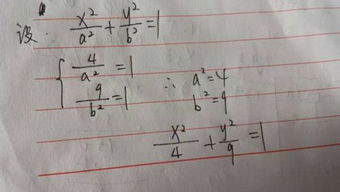 设. x²/a² + y²/b² = 1
{ 4/a² = 1
9/b² = 1
∴ a² = 4
b² = 9
x²/4 + y²/9 = 1